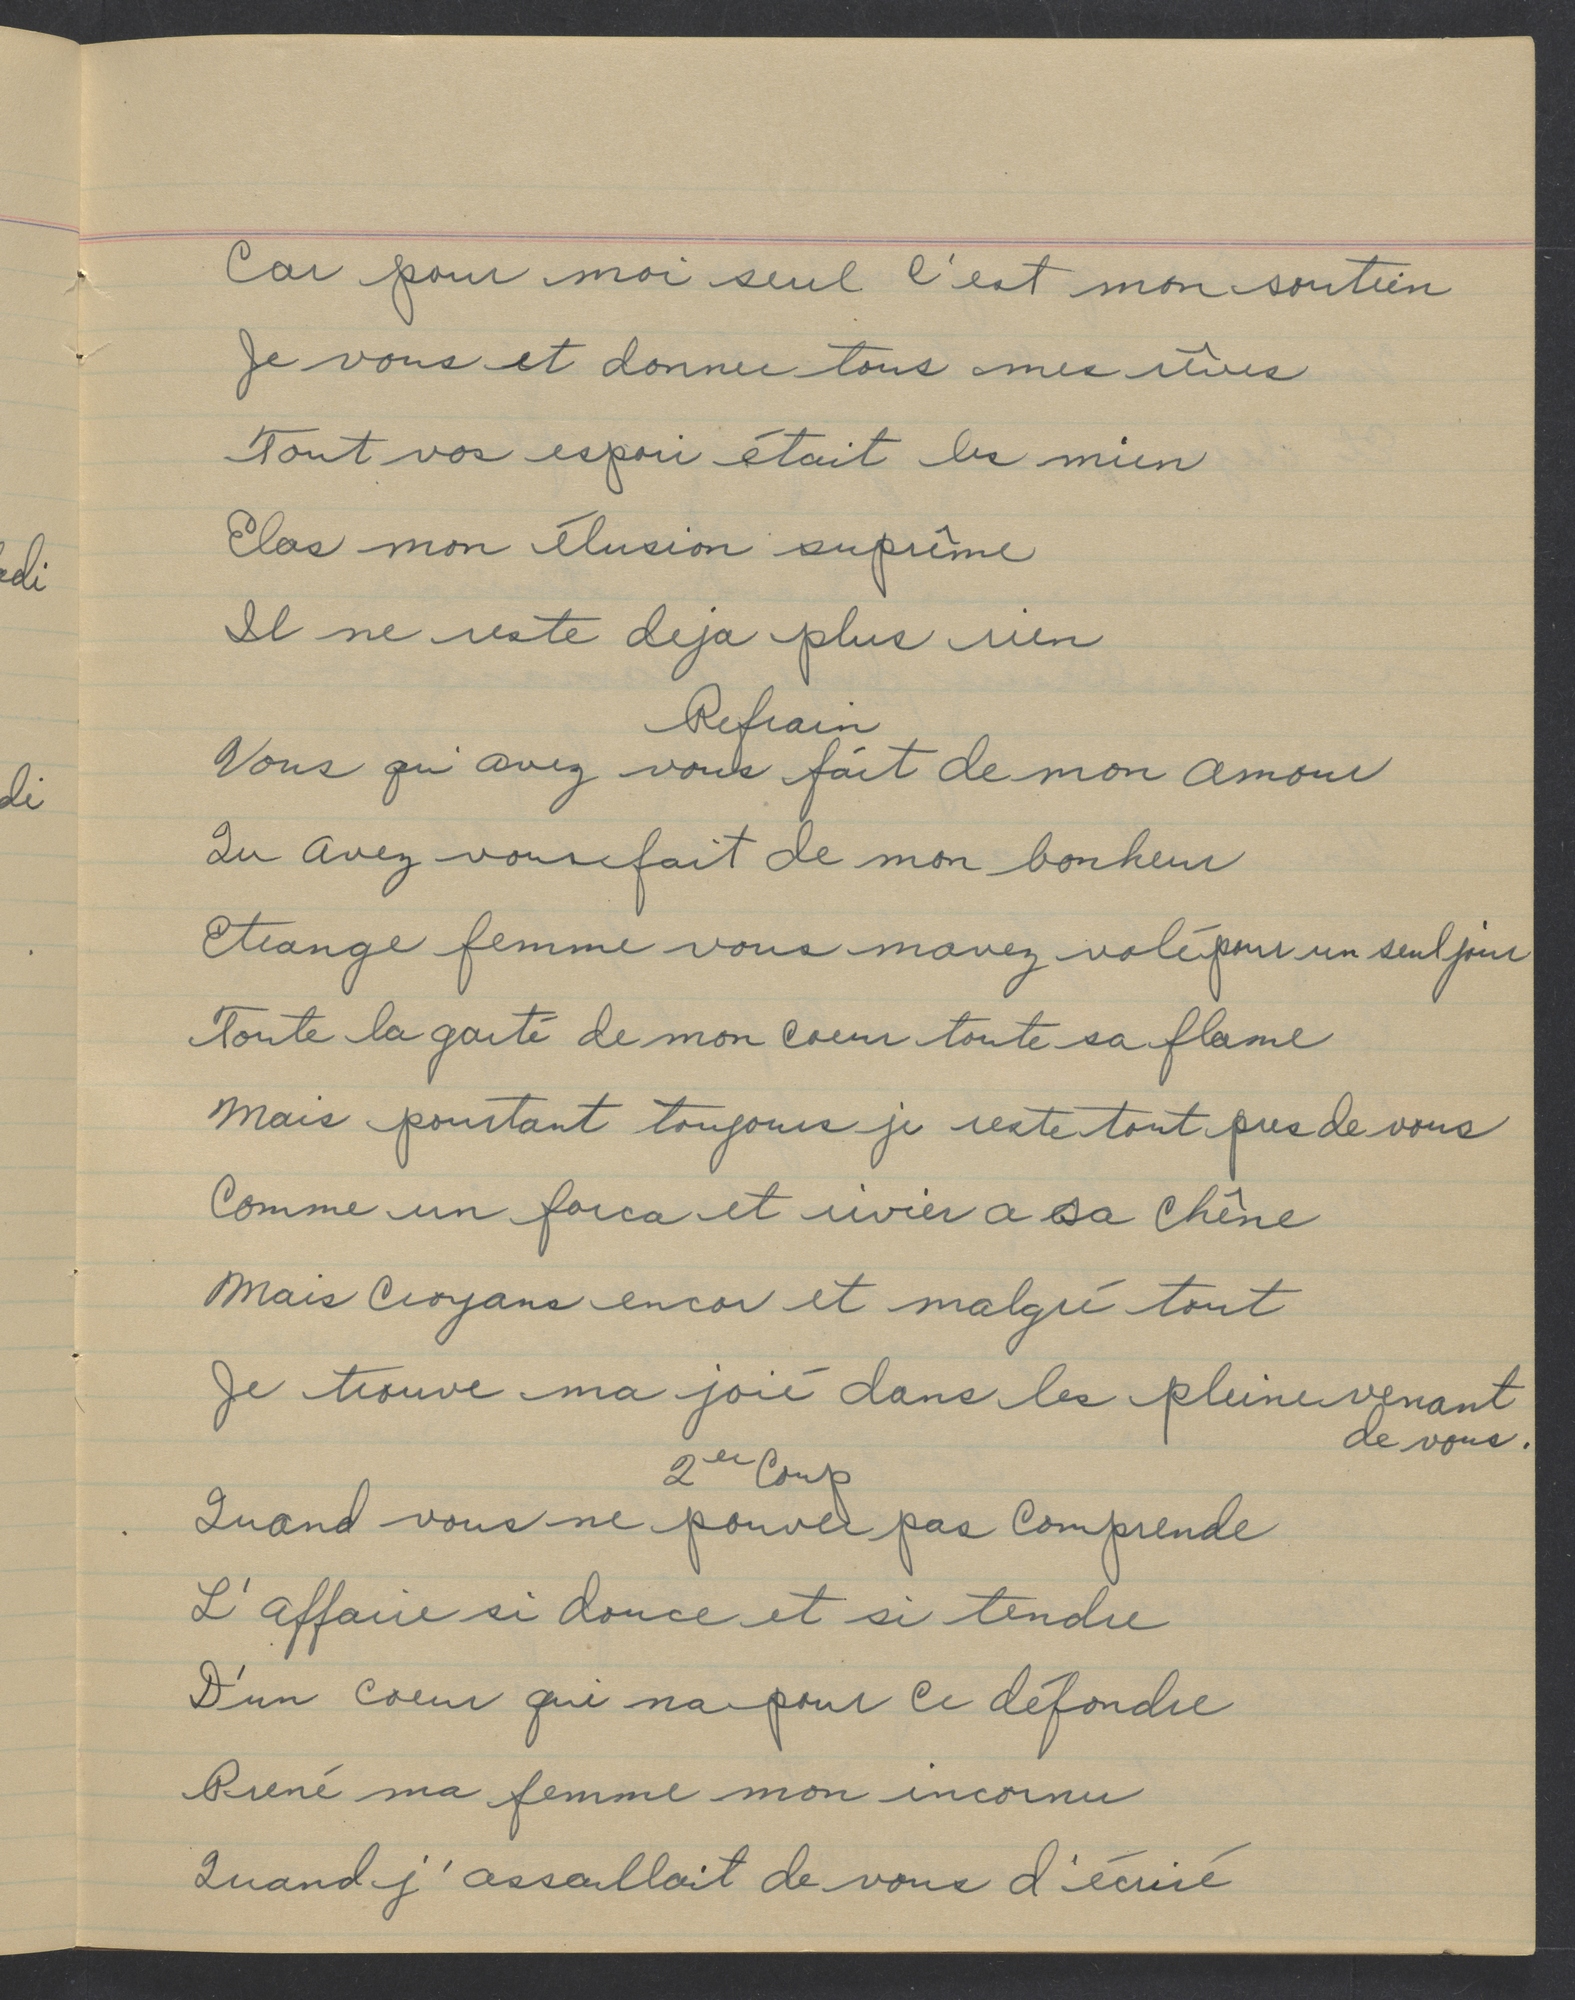 Car pour moi seul c'est mon soutien
Je vous et donner tous mes rêves
Tout vos espoir était les mien
Elas mon élusion suprême
Il ne reste deja plus rien
Refrain
Vous qui avez vous fait de mon amour
Qu avez vous fait de mon bonheur
Etrange femme vous mavez volé pour un seul jour
Toute la gaité de mon coeur toute sa flame
Mais pourtant toujours je reste tout pres de vous
Comme un forca et rivier a sa chêne
Mais croyans encor et malgré tout
Je trouve ma joié dans les pleine venant
de vous.
2er Coup
Quand vous ne pouver pas comprende
L'affaire si douce et si tendre
D'un coeur qui na pour ce défondre
Prené ma femme mon inconnu
Quand j'assaillait de vous d'écriré
edi
di